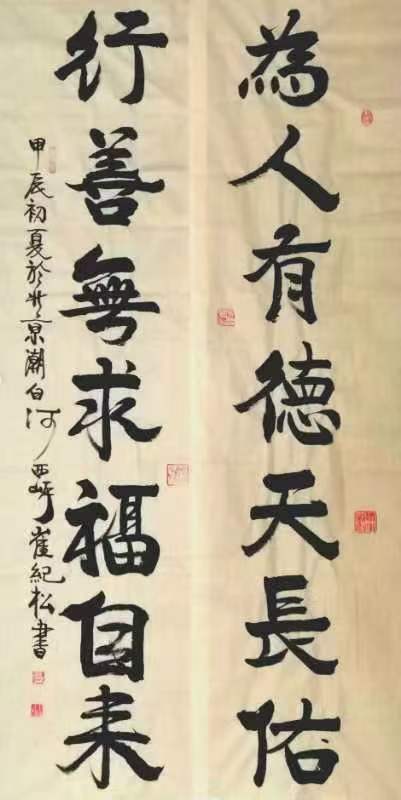 為人有德天長佑
行善無求福自來
甲辰初夏於北京潮白河西岸崔紀松書